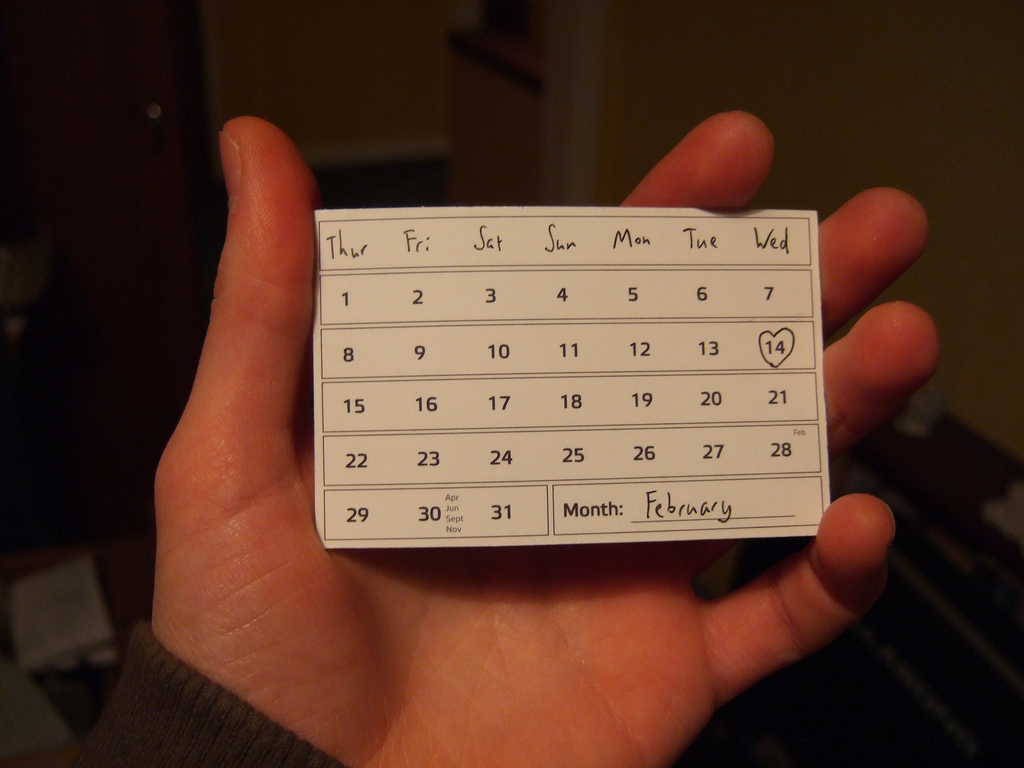 Thur Fri Sat Sun Mon Tue Wed
1 2 3 4 5 6 7
8 9 10 11 12 13 14
15 16 17 18 19 20 21
22 23 24 25 26 27 28 Feb
29 30 Apr Jun Sept Nov 31 Month: February